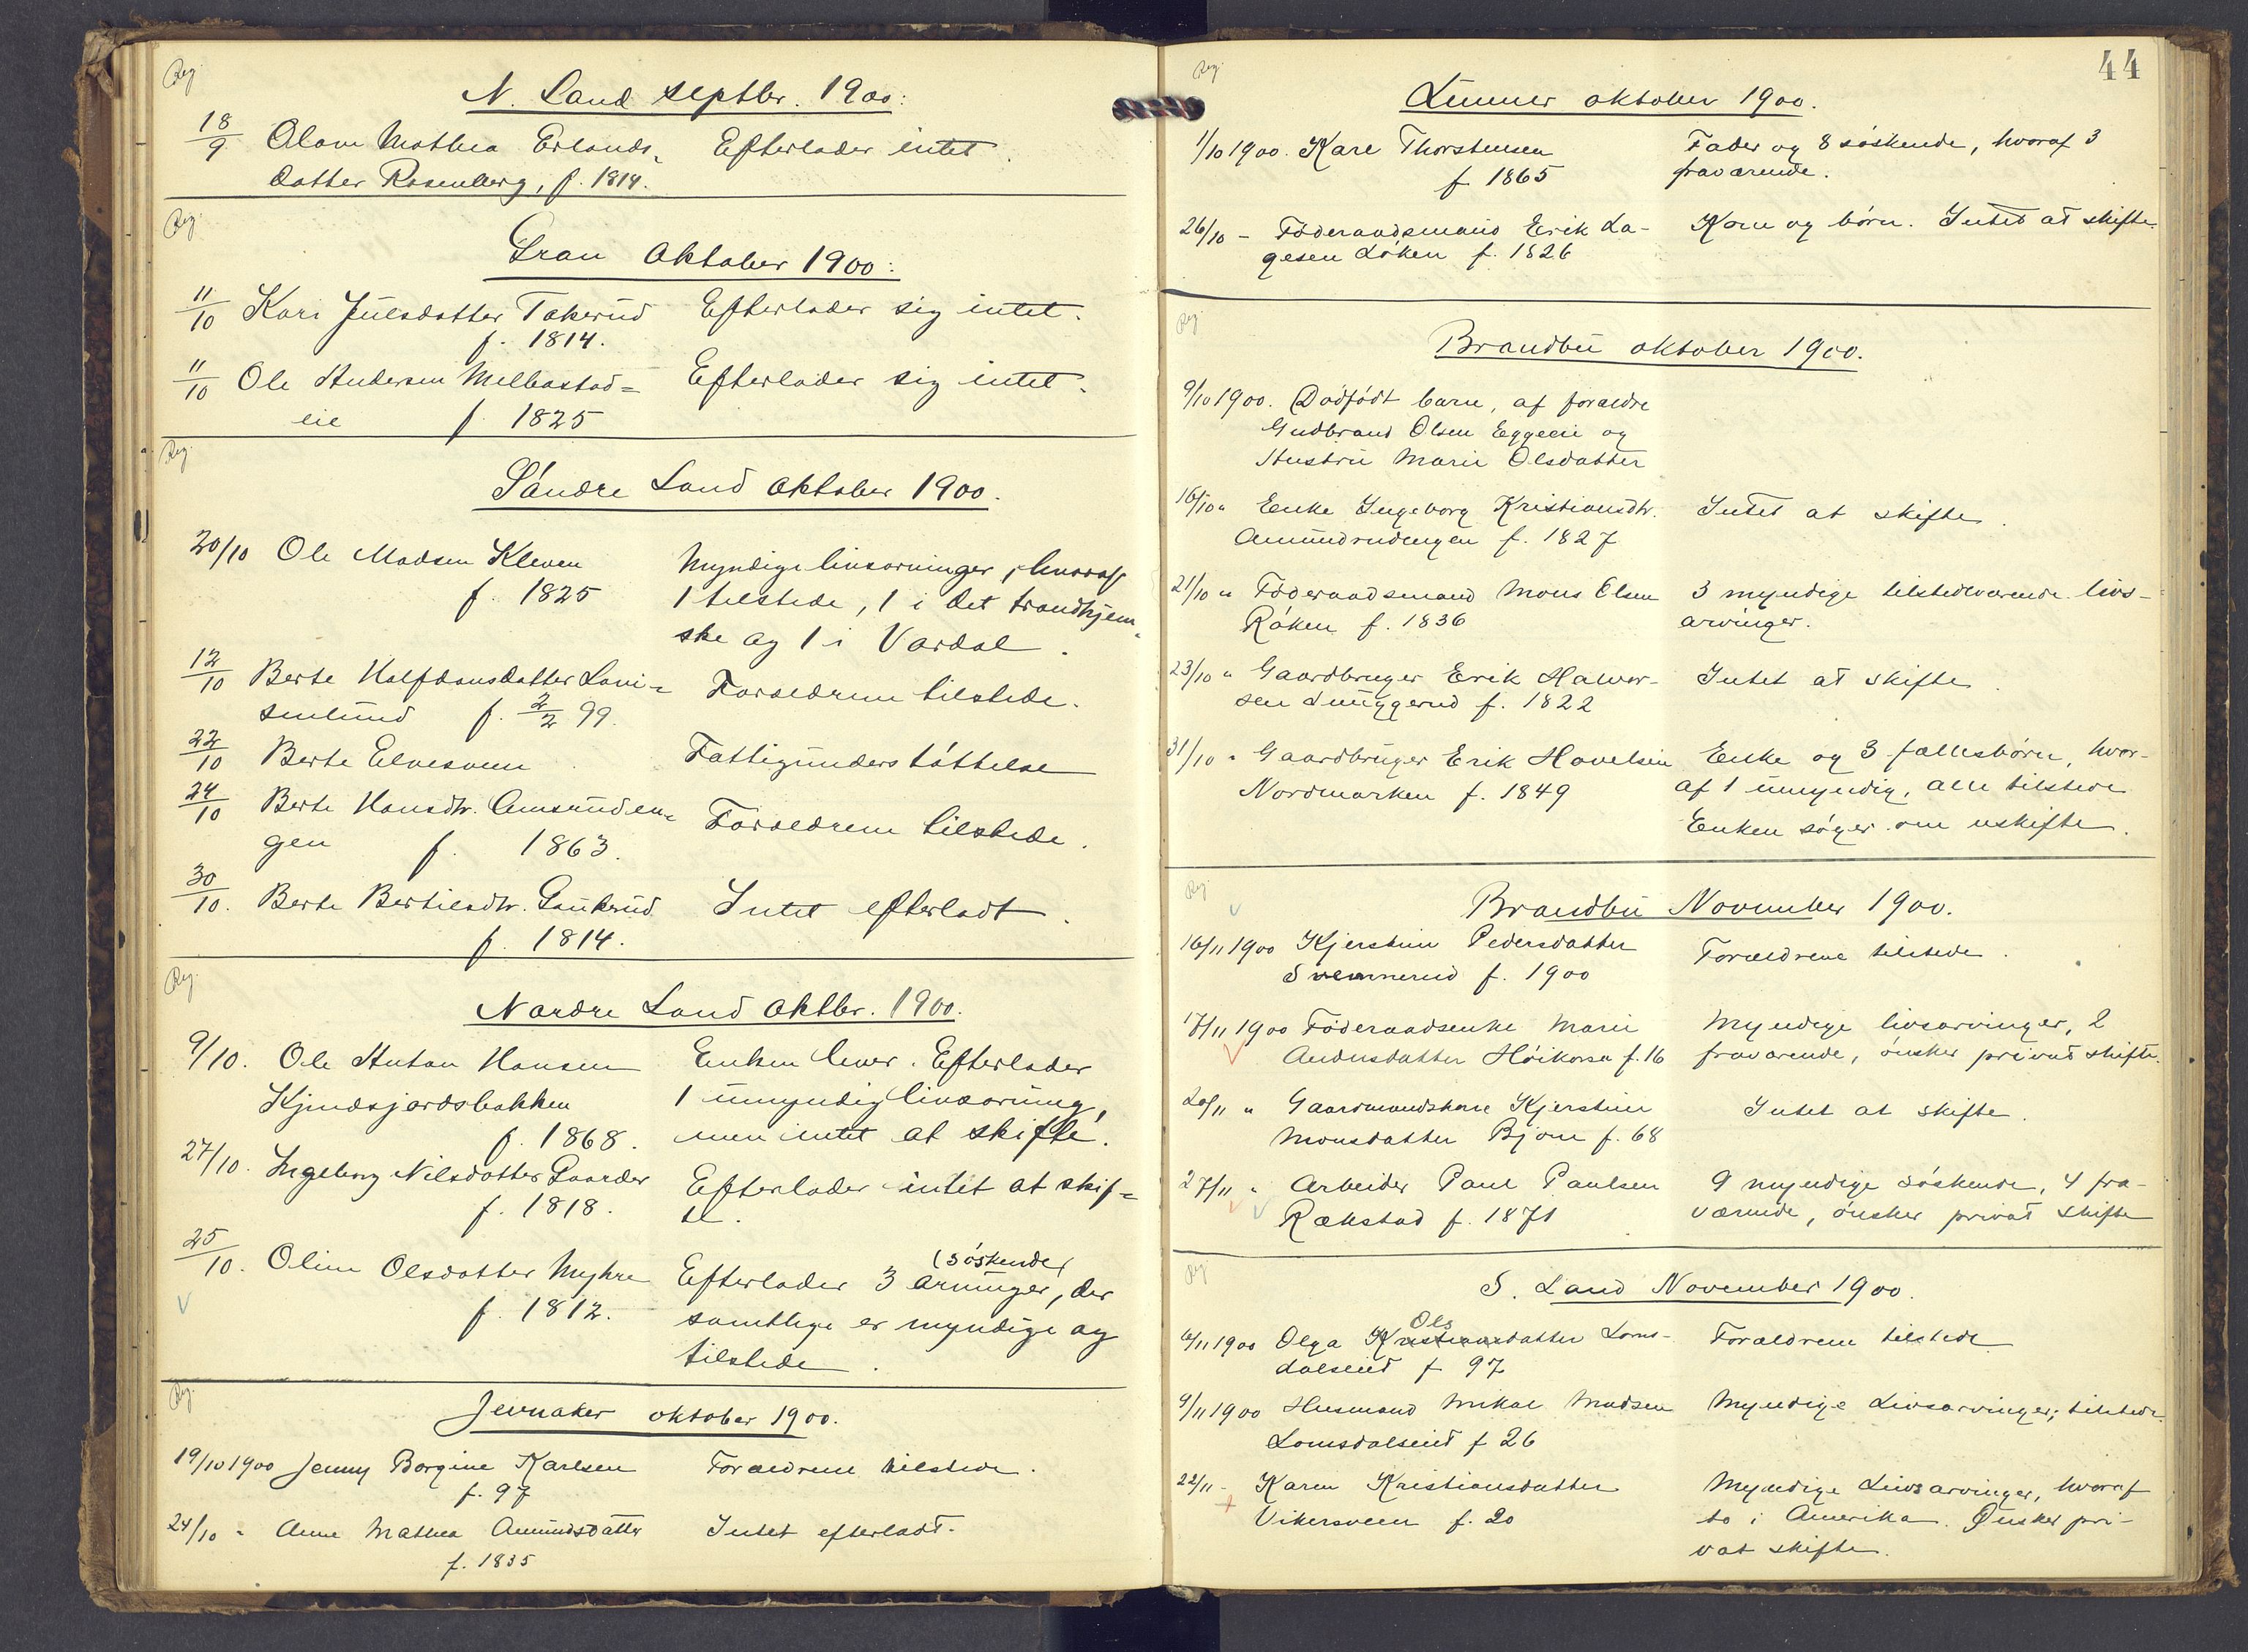 Reg.
N. Land septbr. 1900:
18/9 Olave Mathea Erlands- Efterlader intet.
datter Rosenberg, f. 1814.
Reg.
Gran Oktober 1900:
11/10 Kari Julsdatter Takerud Efterlader sig intet.
f. 1814.
11/10 Ole Andersen Melbostad= Efterlader sig intet.
eie f. 1825
Reg.
Søndre Land Oktober 1900.
20/10 Ole Madsen Kleven Myndige livsarvinger, hvoraf
f. 1825 1 tilstede, 1 i det trondhjem-
ske og 1 i Vardal.
12/10 Berte Halfdansdatter Loni= Forældrene tilstede.
senlund f. 2/2 99.
22/10 Berte Elvesveen Fattigunderstøttelse
24/10 Berte Hansdtr. Amsruden= Forældrene tilstede.
gen f. 1863.
30/10. Berte Bertilsdtr. Gaukerud Intet efterladt.
f. 1814.
Reg.
Nordre Land Oktbr. 1900.
9/10. Ole Anton Hansen Enken lever. Efterlader
Kjindsjordsbakken 1 umyndig livsarving,
f. 1868. men intet at skifte.
27/10. Ingeborg Nilsdatter Gaarder Efterlader intet at skif=
f. 1818. te.
(søskende)
25/10. Oline Olsdatter Myhre Efterlader 3 arvinger, der
f. 1812. samtlige er myndige og
tilstede.
Reg.
Jevnaker oktober 1900.
19/10 1900 Jenny Borgine Karlsen Forældrene tilstede.
f. 97
24/10 " Anne Mathea Amundsdatter Intet efterladt.
f. 1835
44
Reg.
Lunner oktober 1900.
1/10 1900. Kare Thorstensen Fader og 8 søskende, hvoraf 3
f 1865 fraværende.
26/10 - Føderaadsmand Erik La- Kone og børn. Intet at skifte.
gesen Løken f. 1826
Reg.
Brandbu oktober 1900.
9/10 1900. Dødfødt barn, af forældre
Gudbrand Olsen Eggeeie og
Hustru Marie Olsdatter
16/10 " Enke Ingeborg Kristiansdtr. Intet at skifte.
Amundrudengen f. 1827
21/10 " Føderaadsmand Mons Olsen 3 myndige tilstedeværende livs-
Røken f. 1836 arvinger.
23/10 " Gaardbruger Erik Halvor- Intet at skifte.
sen Lunggerud f. 1822
31/10 " Gaardbruger Erik Hovelsen Enke og 3 fællesbørn, hvor-
Nordmarken f. 1849 af 1 umyndig, alle tilstede
Enken søger om uskifte.
Reg.
Brandbu November 1900.
16/11 1900 Kjerstine Pedersdatter Forældrene tilstede.
Svennerud f. 1900
17/11 1900 Føderaadsenke Marie Myndige livsarvinger, 2
Andersdatter Høikorsa f. 16 fraværende, ønsker privat skifte.
20/11 " Gaardmandskone Kjerstine Intet at skifte.
Monsdatter Bjone f. 68
27/11 " Arbeider Paul Paulsen 9 myndige søskende, 4 fra-
Rækstad f. 1871 værende, ønsker privat skifte
Reg.
S. Land November 1900.
Ols
6/11 1900 Olga Kristiansdatter Loms- Forældrene tilstede
dalseiet f 97
9/11 1900 Husmand Mikal Madsen Myndige Livsarvinger; tilstede.
Lomsdalseiet f 26
22/11 - Karen Kristiansdatter Myndige Livsarvinger, hvoraf
Vikersveen f. 20 to i Amerika. Ønsker pri-
vat skifte.